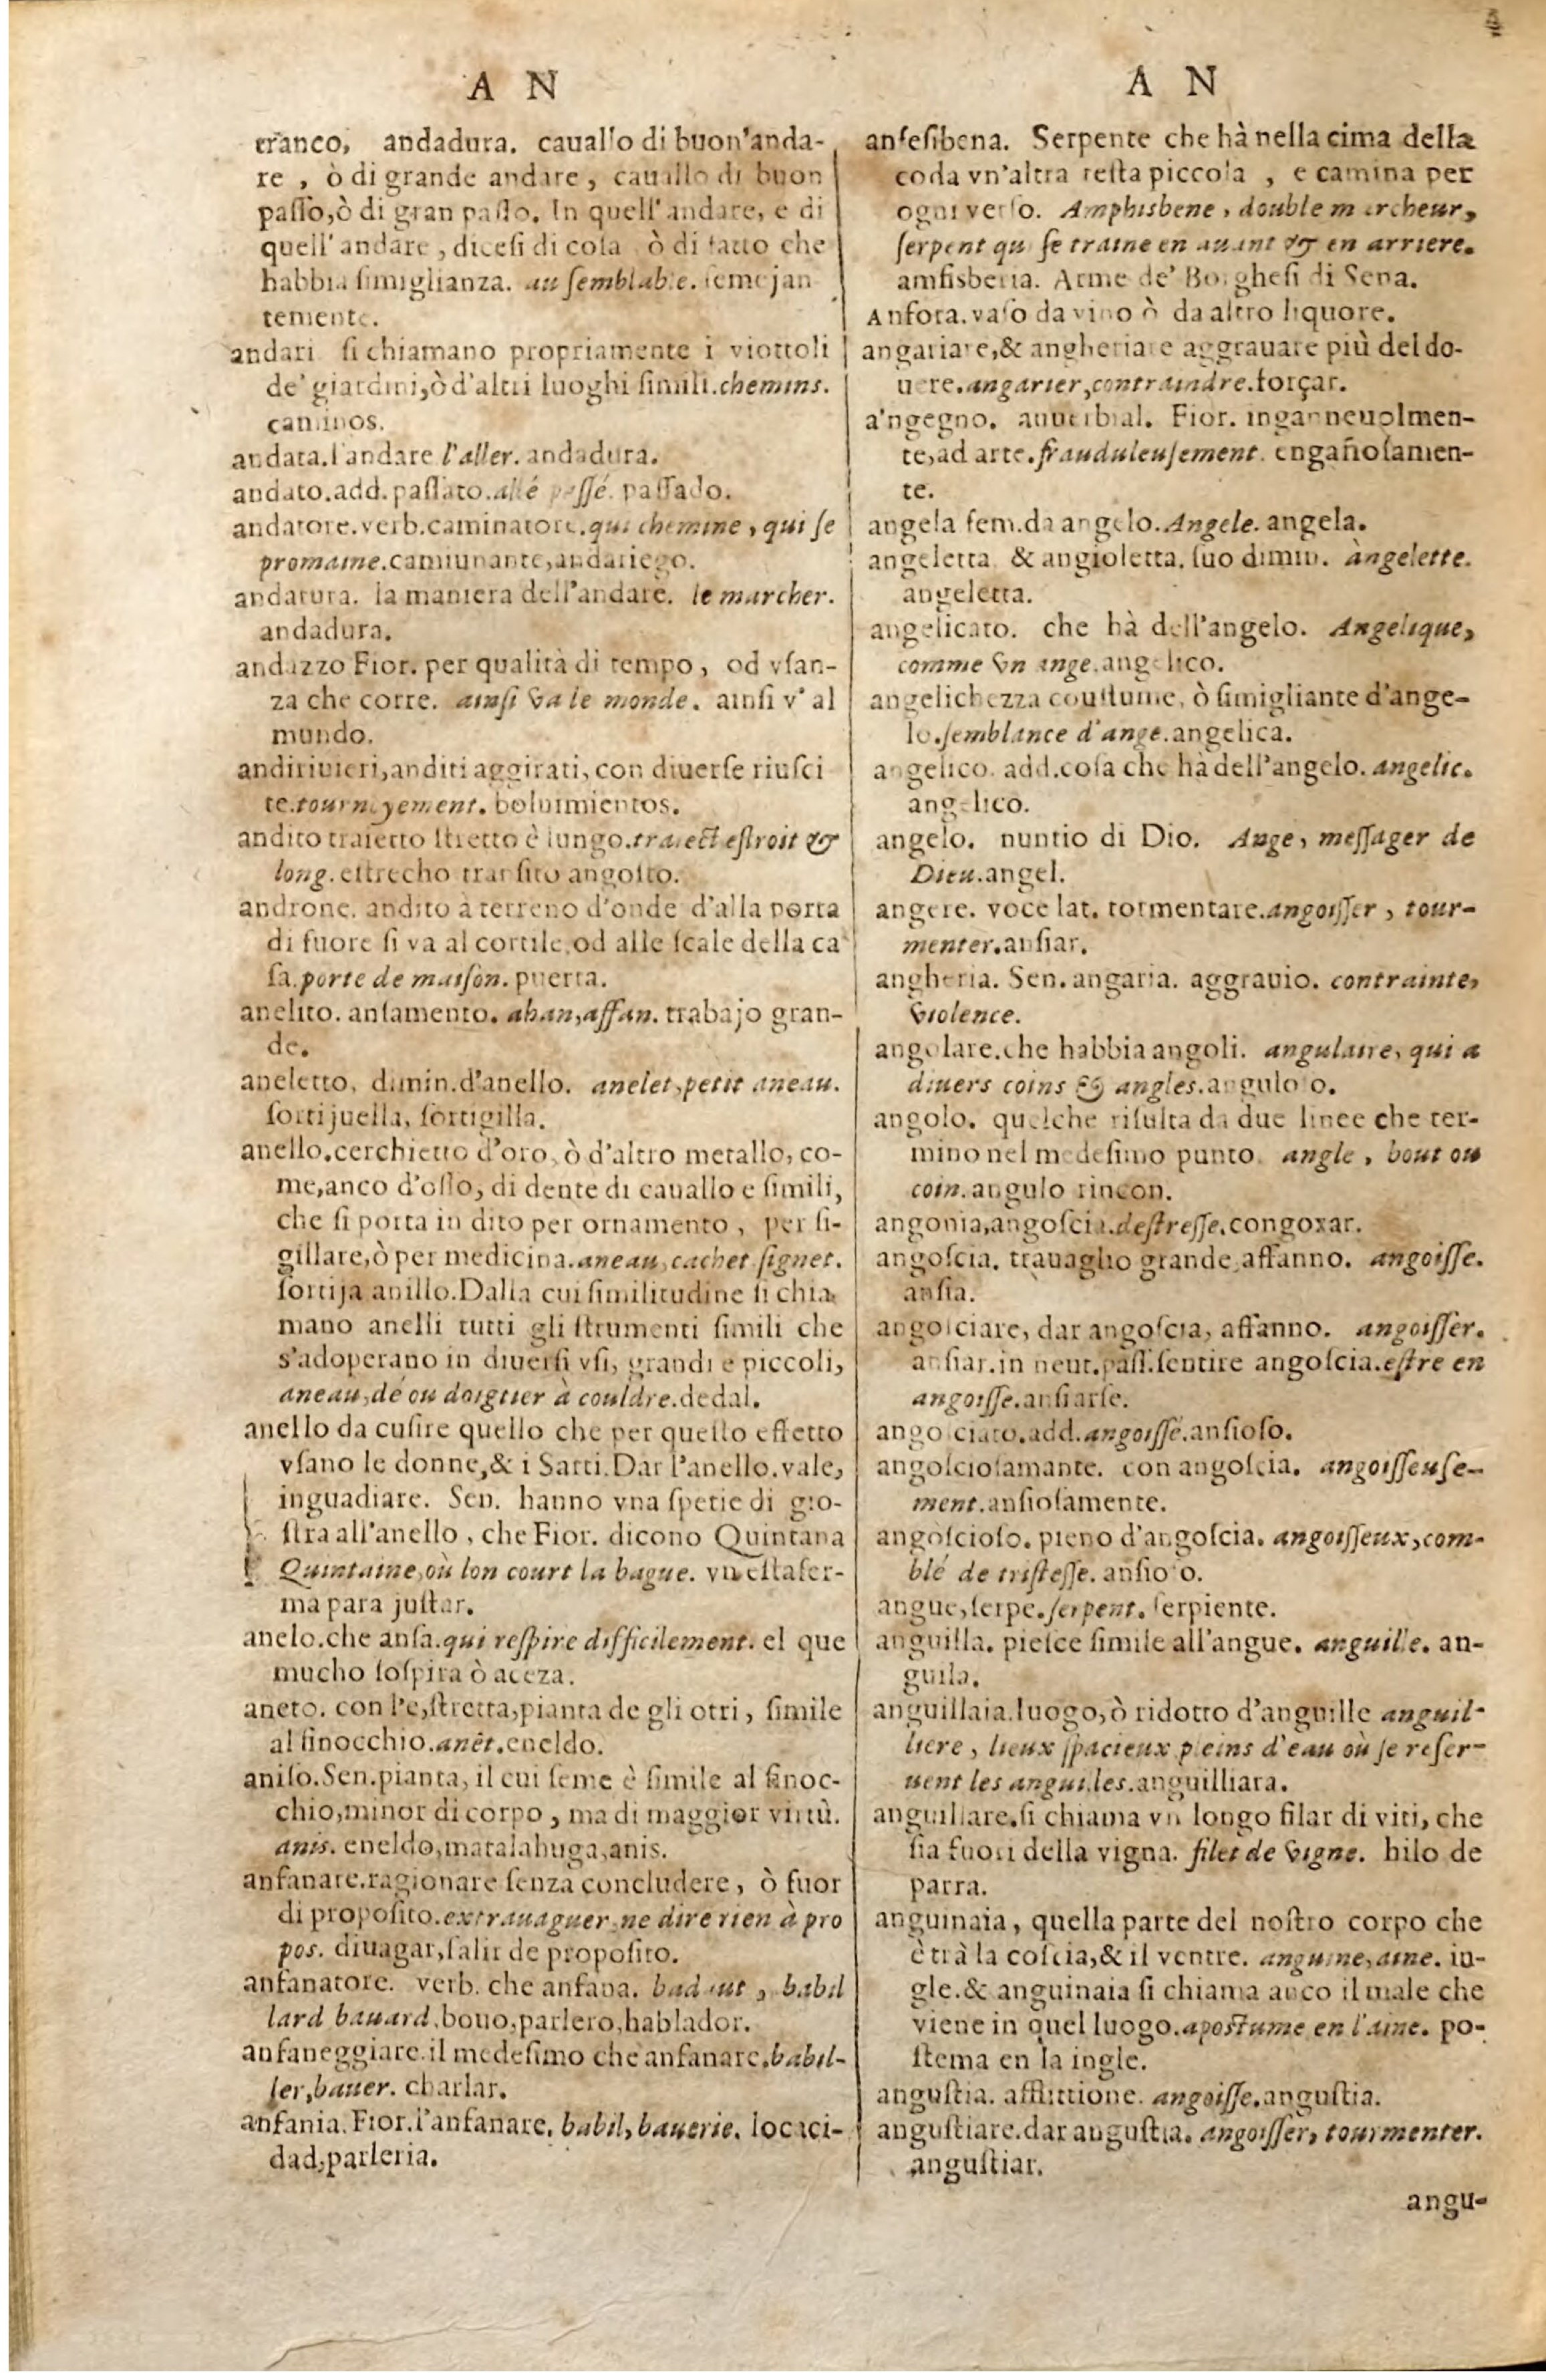 A N
tranco, andadura. cauallo di buon'anda-
re, ò di grande andare, cauallo di buon
paſſo, ò di gran paſſo. In quell'andare, e di
quell'andare, diceſi di coſa ò di fatto che
habbia ſimiglianza. au ſemblable. ſemejan
temente.
andari ſi chiamano propriamente i viottoli
de' giardini, ò d'altri luoghi ſimili. chemins.
caminos.
andata. l'andare l'aller. andadura.
andato. add. paſſato. allé paſſé. paſſado.
andatore. verb. caminatore. qui chemine, qui ſe
promaine. camiunante, andariego.
andatura. la maniera dell'andare. le marcher.
andadura.
andazzo Fior. per qualità di tempo, od vſan-
za che corre. ainſi va le monde. ainſi v' al
mundo.
andiriuieri, anditi aggirati, con diuerſe riuſci
te. tournoyement. boluimientos.
andito traietto ſtretto è lungo. traiect eſtroit &
long. eſtrecho tranſito angoſto.
androne. andito à terreno d'onde d'alla porta
di fuore ſi va al cortile, od alle ſcale della ca
ſa. porte de maiſon. puerta.
anelito. anſamento. ahan, affan. trabajo gran-
de.
aneletto, dimin. d'anello. anelet, petit aneau.
ſortijuella, ſortigilla.
anello. cerchietto d'oro, ò d'altro metallo, co-
me, anco d'oſſo, di dente di cauallo e ſimili,
che ſi porta in dito per ornamento, per ſi-
gillare, ò per medicina. aneau, cachet ſignet.
ſortija anillo. Dalla cui ſimilitudine ſi chia
mano anelli tutti gli ſtrumenti ſimili che
s'adoperano in diuerſi vſi, grandi e piccoli,
aneau, dé ou doigtier à couldre. dedal.
anello da cuſire quello che per queſto effetto
vſano le donne, & i Sarti. Dar l'anello. vale,
inguadiare. Sen. hanno vna ſpetie di gio-
ſtra all'anello, che Fior. dicono Quintana
Quintaine, où lon court la bague. vn eſtafer-
ma para juſtar.
anelo. che anſa. qui reſpire difficilement. el que
mucho ſoſpira ò aceza.
aneto. con l'e, ſtretta, pianta de gli otri, ſimile
al finocchio. anêt. eneldo.
aniſo. Sen. pianta, il cui ſeme è ſimile al finoc-
chio, minor di corpo, ma di maggior virtù.
anis. eneldo, matalahuga, anis.
anfanare. ragionare ſenza concludere, ò fuor
di propoſito. extrauaguer, ne dire rien à pro
pos. diuagar, ſalir de propoſito.
anfanatore. verb. che anfana. badaut, babil
lard bauard. bouo, parlero, hablador.
anfaneggiare. il medeſimo che anfanare. babil-
ler, bauer. charlar.
anfania. Fior. l'anfanare. babil, bauerie. locaci-
dad, parleria.
A N
anfeſibena. Serpente che hà nella cima della
coda vn'altra teſta piccola, e camina per
ogni verſo. Amphisbene, double marcheur,
ſerpent qui ſe traine en auant & en arriere.
amfisberia. Arme de' Borgheſi di Sena.
Anfora. vaſo da vino ò da altro liquore.
angariare, & angheriare aggrauare più del do-
uere. angarier, contraindre. forçar.
a'ngegno. auuerbial. Fior. inganneuolmen-
te, ad arte. frauduleuſement. engañoſamen-
te.
angela fem. da angelo. Angele. angela.
angeletta & angioletta. ſuo dimin. àngelette.
angeletta.
angelicato. che hà dell'angelo. Angelique,
comme vn ange. angelico.
angelichezza couſtume, ò ſimigliante d'ange-
lo. ſemblance d'ange. angelica.
angelico. add. coſa che hà dell'angelo. angelic.
angelico.
angelo. nuntio di Dio. Ange, meſſager de
Dieu. angel.
angere. voce lat. tormentare. angoiſſer, tour-
menter. anſiar.
angheria. Sen. angaria. aggrauio. contrainte,
violence.
angolare. che habbia angoli. angulaire, qui a
diuers coins & angles. anguloſo.
angolo. quelche riſulta da due linee che ter-
mino nel medeſimo punto. angle, bout ou
coin. angulo rincon.
angonia, angoſcia. deſtreſſe. congoxar.
angoſcia. trauaglio grande, affanno. angoiſſe.
anſia.
angoſciare, dar angoſcia, affanno. angoiſſer.
anſiar. in neut. paſſ. ſentire angoſcia. eſtre en
angoiſſe. anſiarſe.
angoſciato. add. angoiſſé. anſioſo.
angoſcioſamante. con angoſcia. angoiſſeuſe-
ment. anſioſamente.
angoſcioſo. pieno d'angoſcia. angoiſſeux, com-
blé de triſteſſe. anſioſo.
angue, ſerpe. ſerpent. ſerpiente.
anguilla. pieſce ſimile all'angue. anguille. an-
guila.
anguillaia. luogo, ò ridotto d'anguille anguil-
liere, lieux ſpacieux pleins d'eau où ſe reſer-
uent les anguilles. anguilliara.
anguillare. ſi chiama vn longo filar di viti, che
ſia fuori della vigna. filet de vigne. hilo de
parra.
anguinaia, quella parte del noſtro corpo che
è trà la coſcia, & il ventre. anguine, aine. in-
gle. & anguinaia ſi chiama anco il male che
viene in quel luogo. apoſtume en l'aine. po-
ſtema en la ingle.
anguſtia. afflittione. angoiſſe. anguſtia.
anguſtiare. dar anguſtia. angoiſſer, tourmenter.
anguſtiar.
angu-